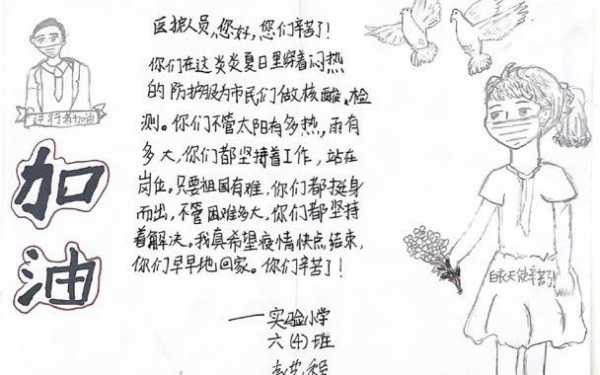 医护人员,您好,您们辛苦了!
你们在这炎炎夏日里穿着闷热
的防护服为市民们做核酸、检
测。你们不管太阳有多热,雨有
多大,你们都坚持着工作,站在
岗位。只要祖国有难,你们都挺身
而出,不管困难多大,你们都坚持
着解决。我真希望疫情快点结束,
你们早早地回家。你们辛苦了!
——实验小学
六(4)班
加
油
白衣天使辛苦了!